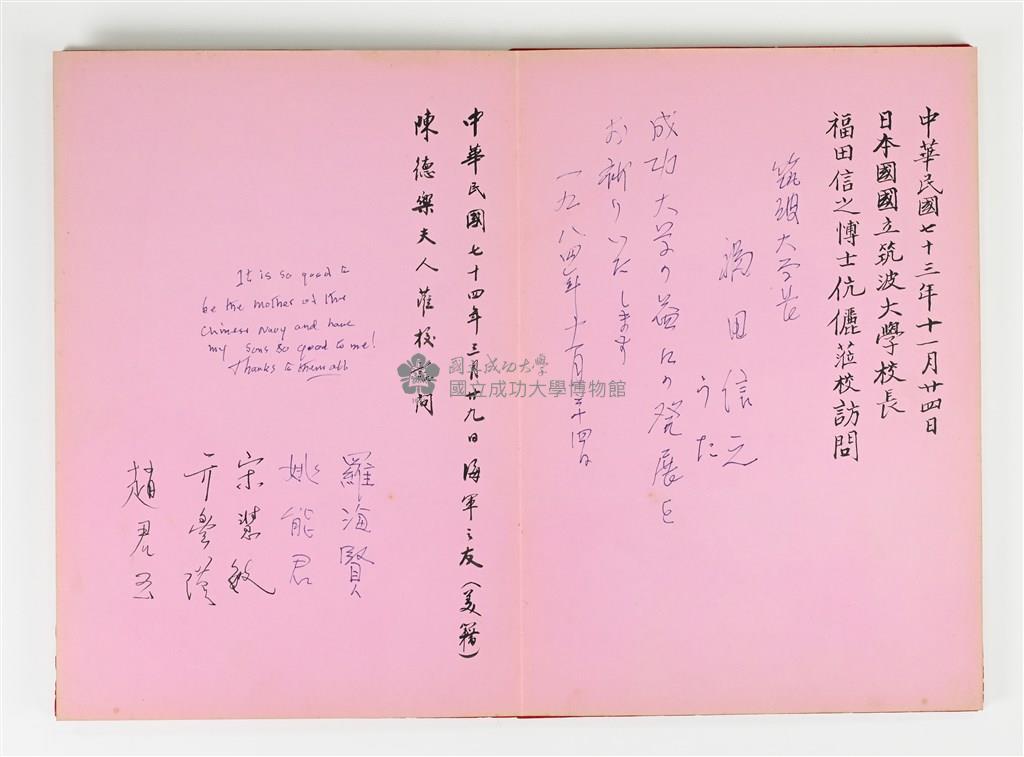 中華民國七十三年十一月廿四日
日本國國立筑波大學校長
福田信之博士伉儷蒞校訪問
筑波大学長
福田信之
うた
成功大学の益々の発展を
お祈りいたします
一九八四年十一月二十四日
中華民國七十四年三月廿九日海軍之友(美籍)
陳德樂夫人蒞校訪問
It is so good to
be the mother of the
Chinese Navy and have
my sons so good to me!
thanks to them all
羅海賢
姚能君
宋慧敏
趙君
國立成功大學
國立成功大學博物館